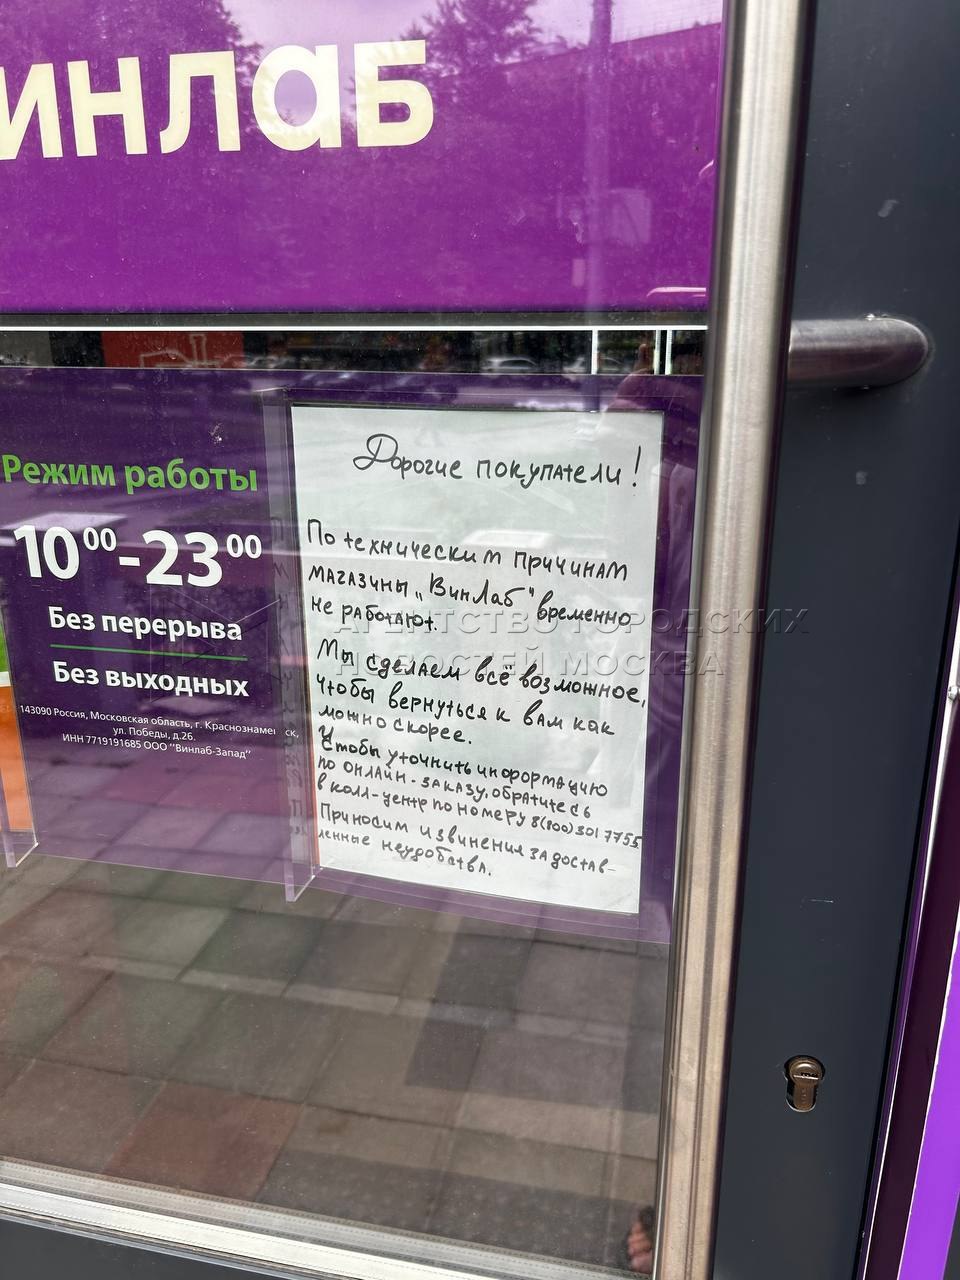 инлаб
Режим работы
10⁰⁰-23⁰⁰
Без перерыва
Без выходных
143090 Россия, Московская область, г. Краснознаме ск,
ул. Победы, д.26.
ИНН 7719191685 ООО "Винлаб-Запад"
Дорогие покупатели!
По техническим причинам
магазины „ВинЛаб" временно
не работают.
Мы сделаем всё возможное,
чтобы вернуться к вам как
можно скорее.
Чтобы уточнить информацию
по онлайн-заказу, обратитесь
в колл-центр по номеру 8(800)301 7755
Приносим извинения за достав-
ленные неудобства.
АГЕНТСТВО ГОРОДСКИХ
НОВОСТЕЙ МОСКВА